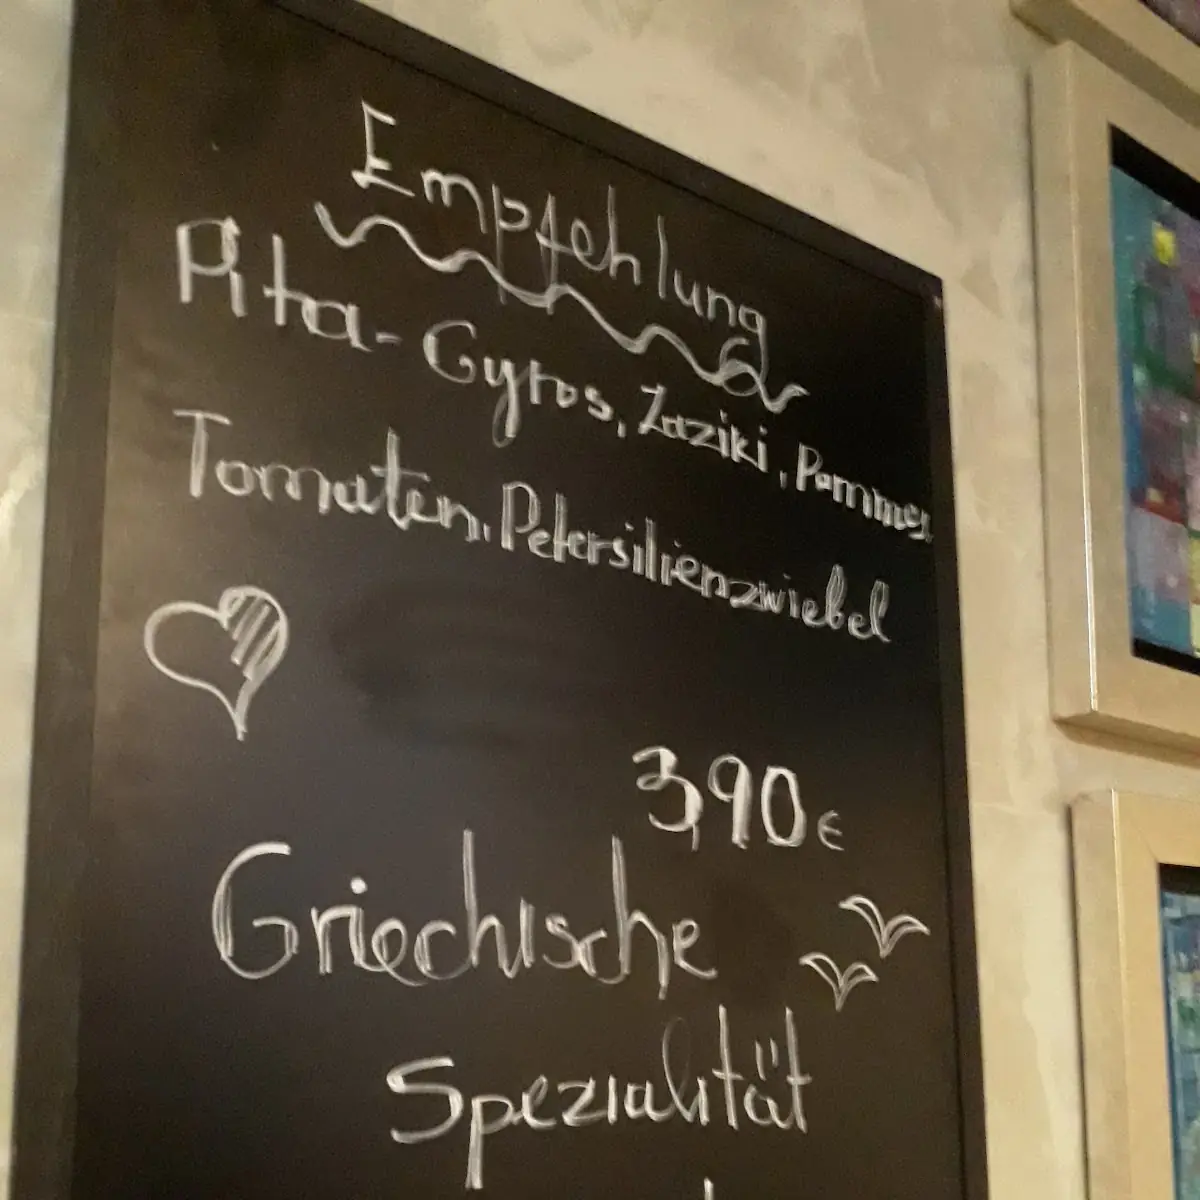 Empfehlung
Pita-Gyros, Zaziki, Pommes,
Tomaten, Petersilienzwiebel
3,90 €
Griechische
Spezialität